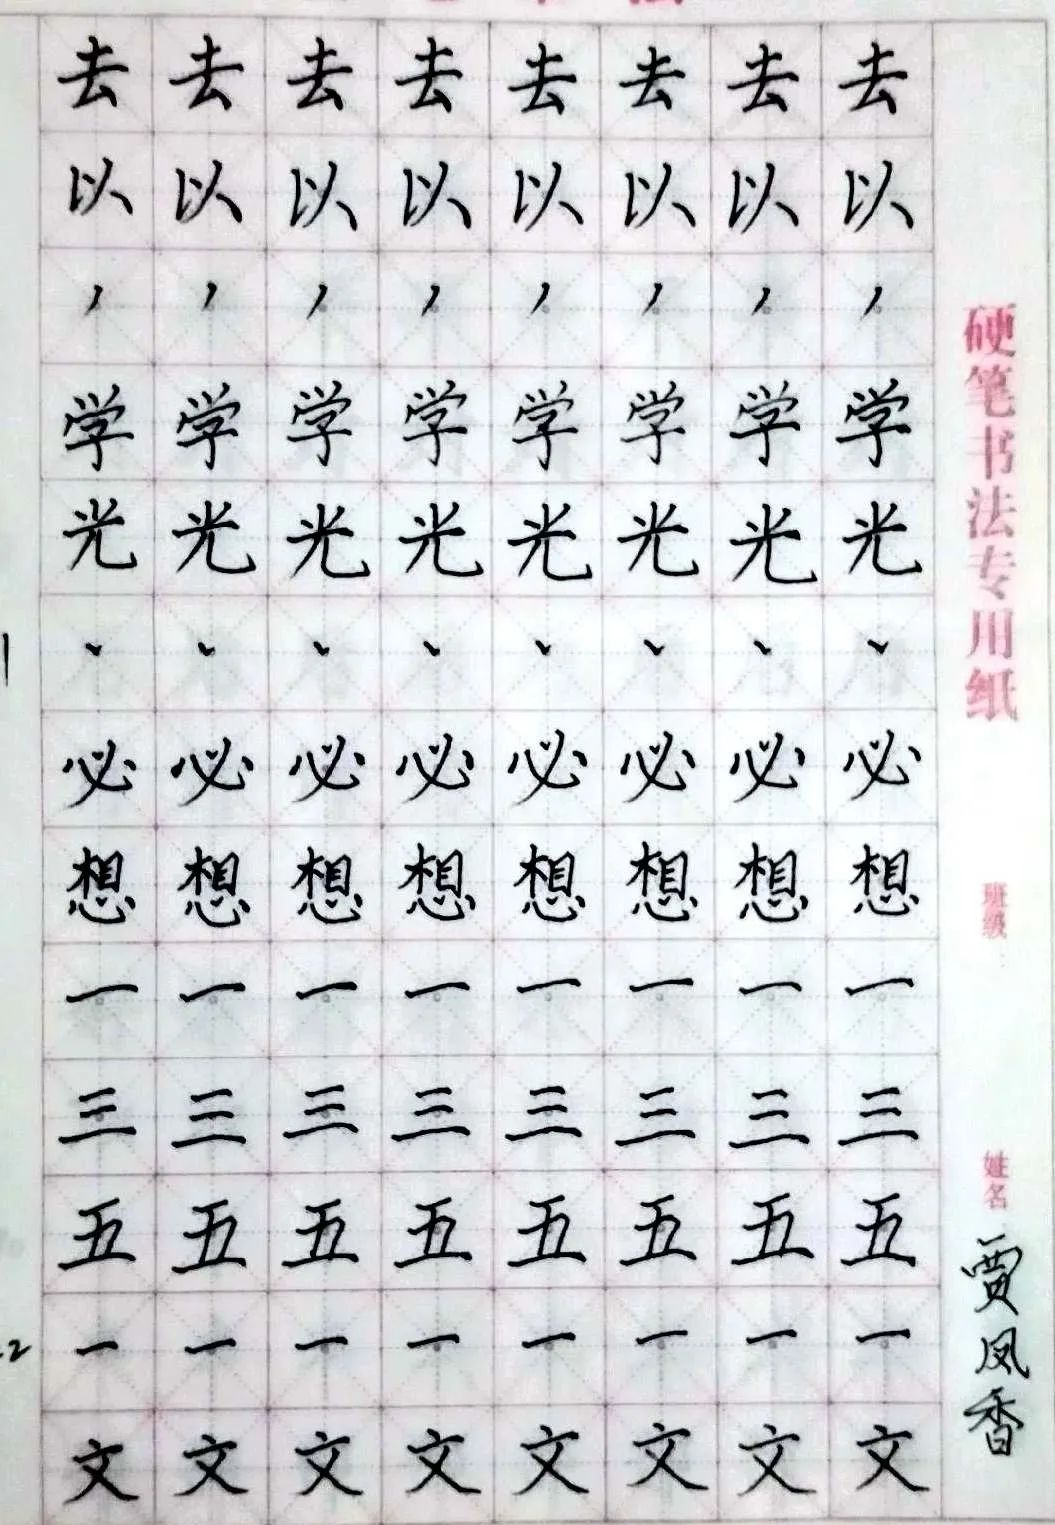 去去去去去去去去
以以以以以以以以
学学学学学学学学
光光光光光光光光
必必必必必必必必
想想想想想想想想
一一一一一一一一
三三三三三三三三
五五五五五五五五
一一一一一一一一
文文文文文文文文
硬笔书法专用纸
班级
姓名 贾凤香